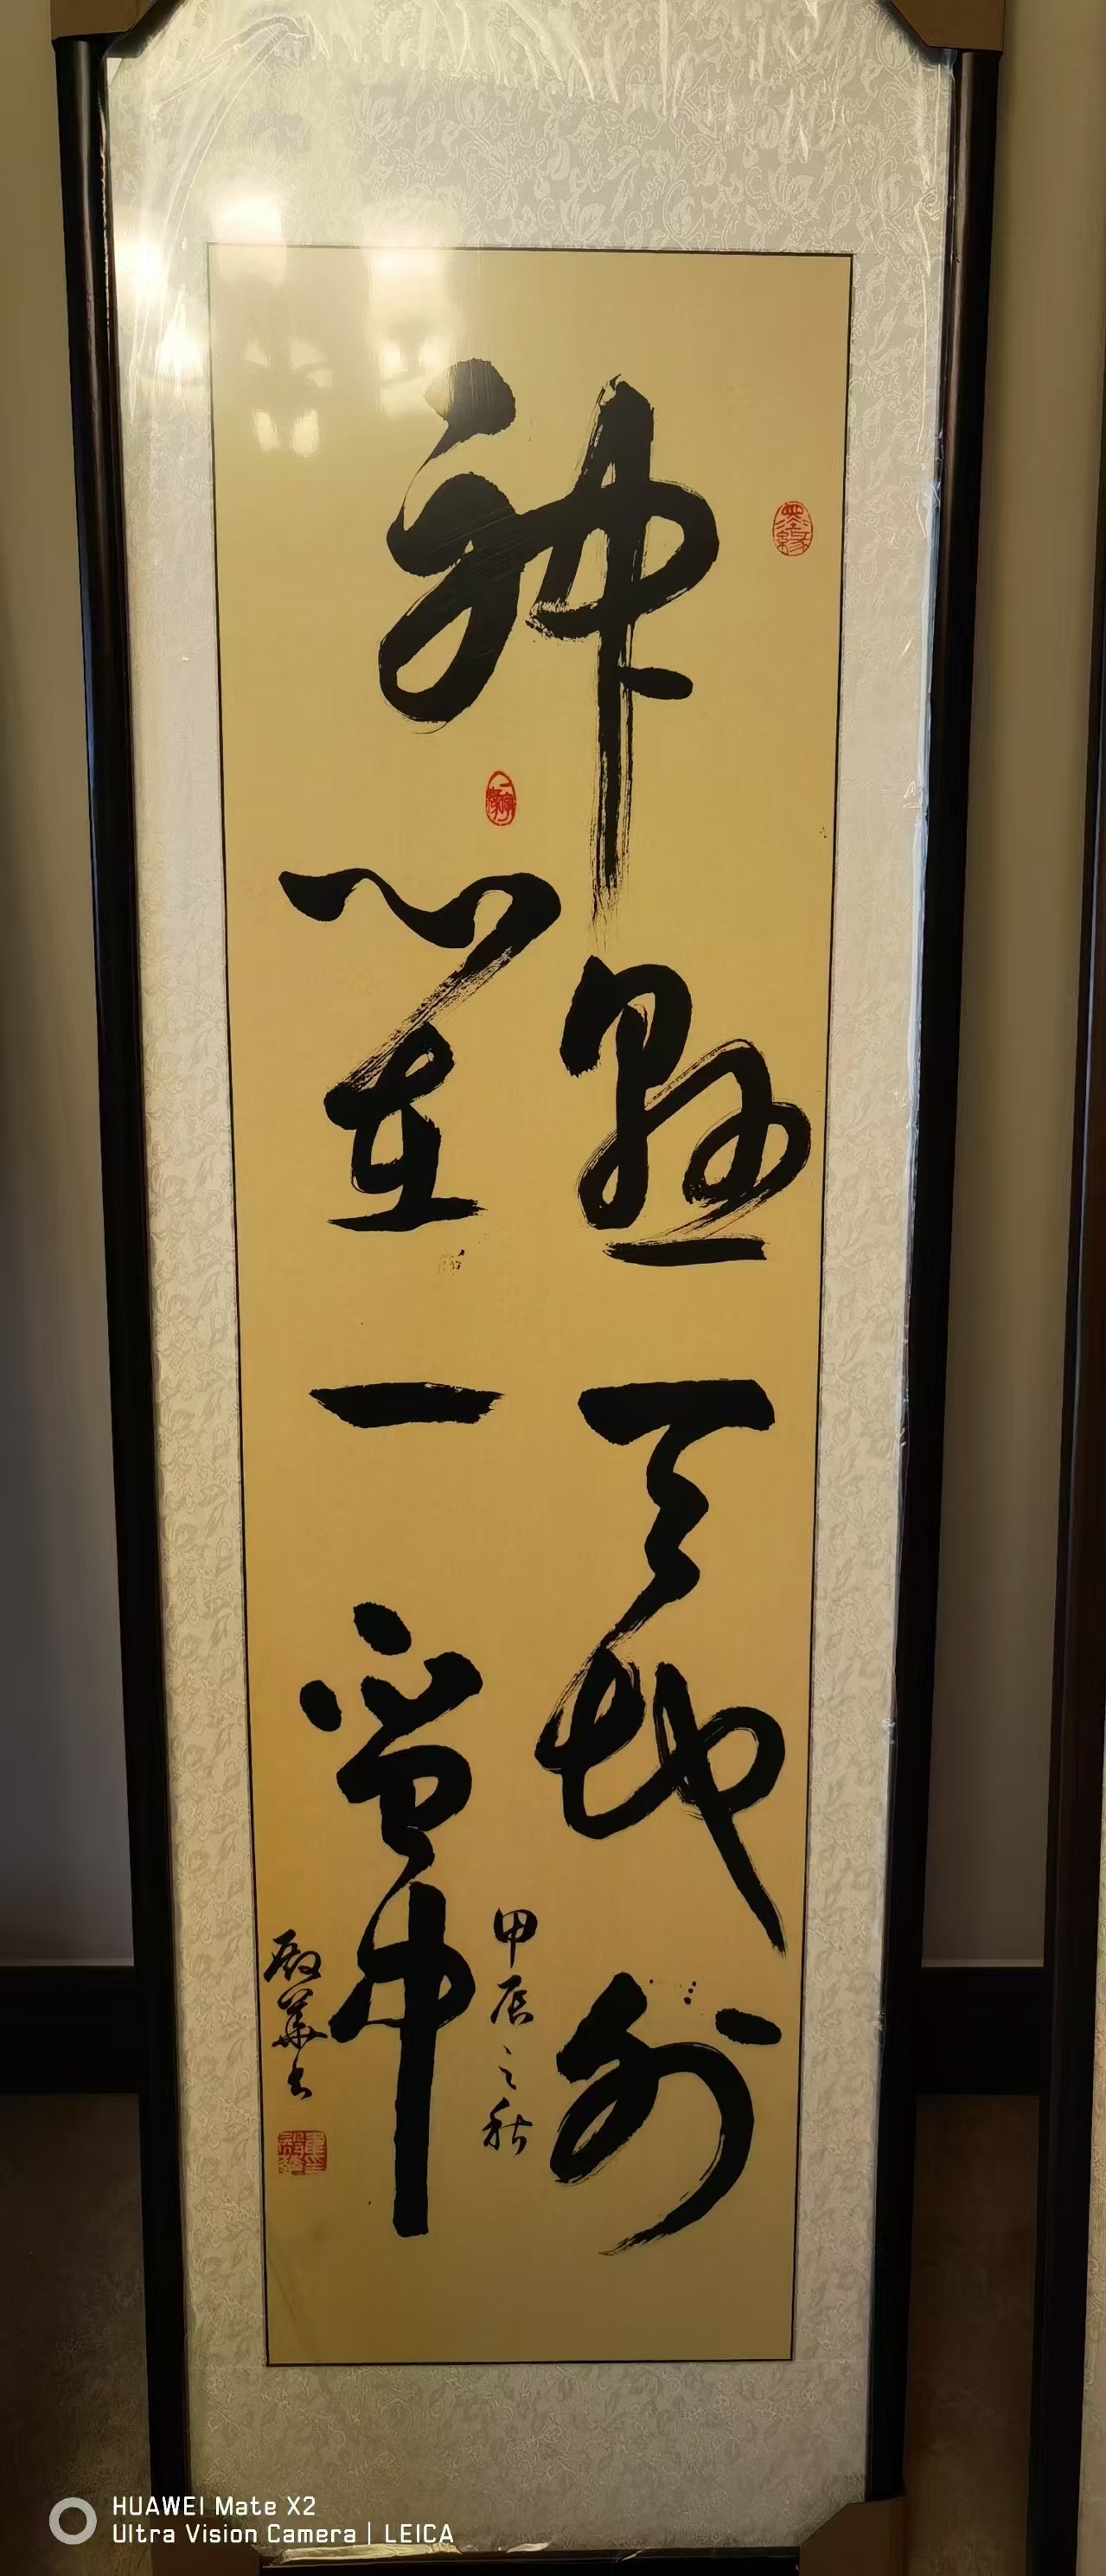 神游天地外
心在一壶中
甲辰之秋
殿华书
墨缘
HUAWEI Mate X2
Ultra Vision Camera | LEICA